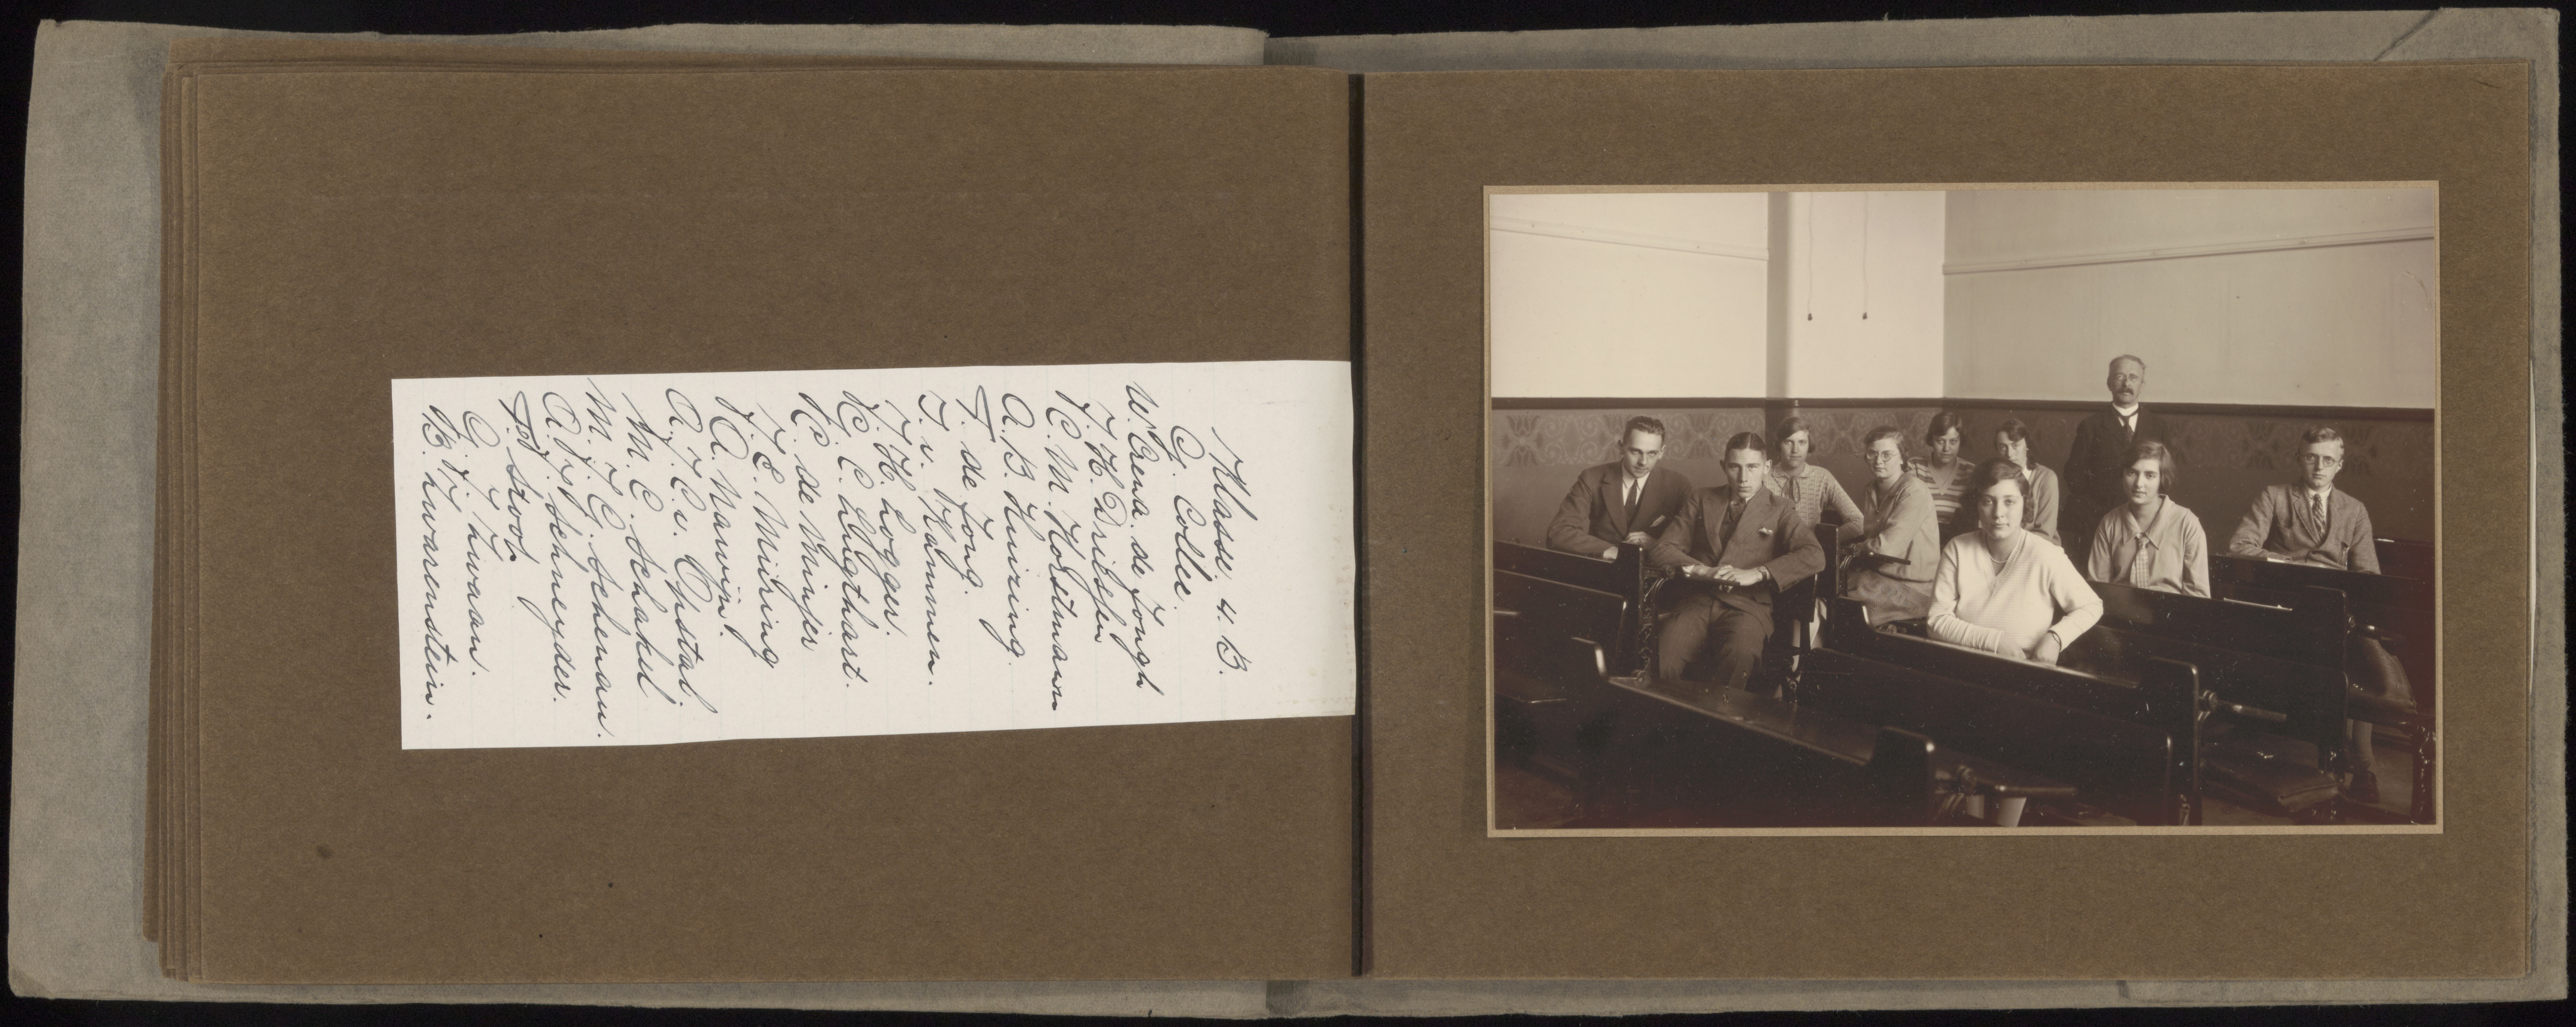 Klasse 4. B.
G. Collé.
W. Crena de Jongh
J. H. Driessen
H. M. Horstmann
A. B. Huizing.
F. de Jong.
J. v. Kammen.
J. H. Logger.
H. G. C. Lugthart.
H. de Minjer
J. E. Mulring
J. A. Nawijn.
A. J. C. v. Opstal.
M. C. Schakel
M. J. G. Schenau.
A. J. J. Schneyder.
Stroot.
G. J. Zwaan.
B. Zwarenstein.